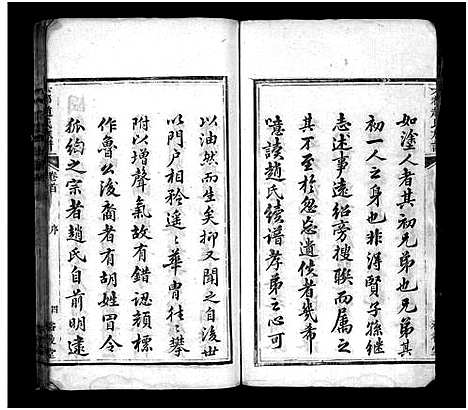 如塗人者其初兄弟也兄弟其
初一人之身也非得賢子孫繼
志述事遠紹旁搜聯而属之
其不至於忽忘遺佚者幾希
噫讀趙氏續譜孝弟之心可
以油然而生矣抑又聞之自後世
以門户相矜遥遥華胄往往攀
附以增聲氣故有錯認顏標
作魯公後裔者有胡姓冒令
狐絢之宗者趙氏自前明逮
卷首
序
四